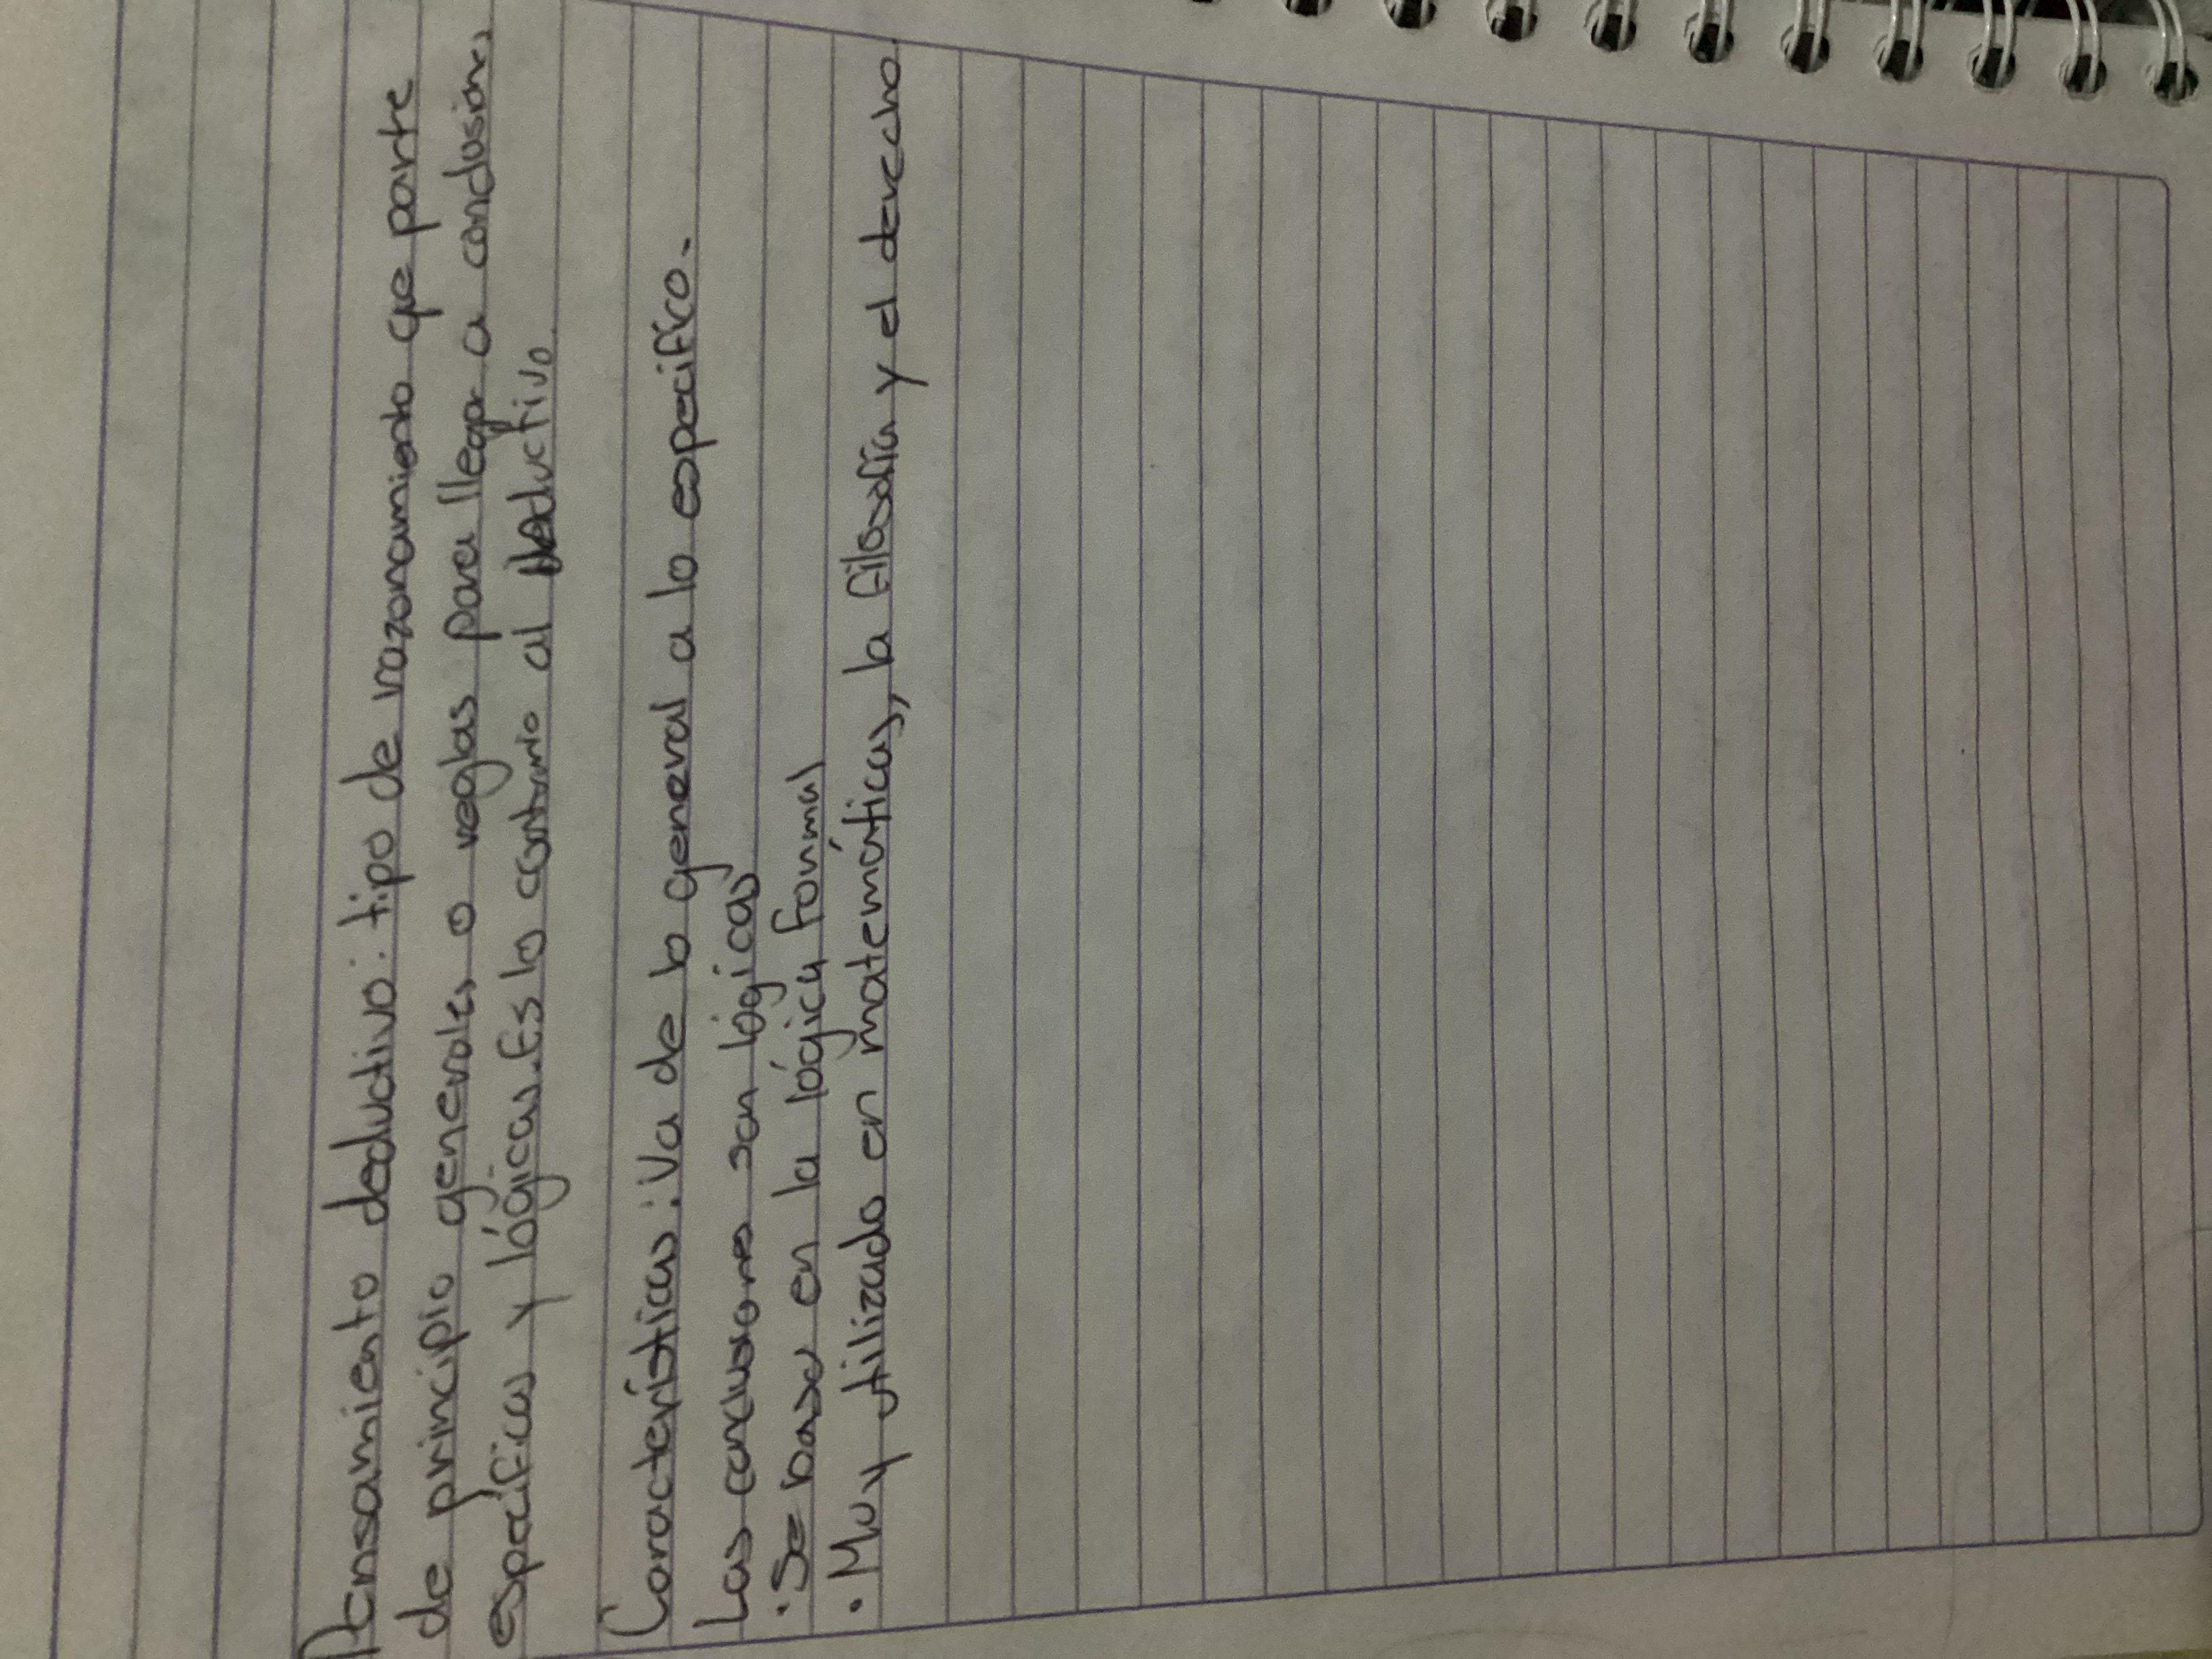 Pensamiento deductivo: tipo de razonamiento que parte
de principio generales o reglas para llegar a conclusiones
específicas y lógicas. Es lo contrario al
Características: Va de lo general a lo especifíco.
Las conclusiones son lógicas
· Se basa en la lógica formal
· Muy utilizado en matemáticas, la filosofía y el derecho.